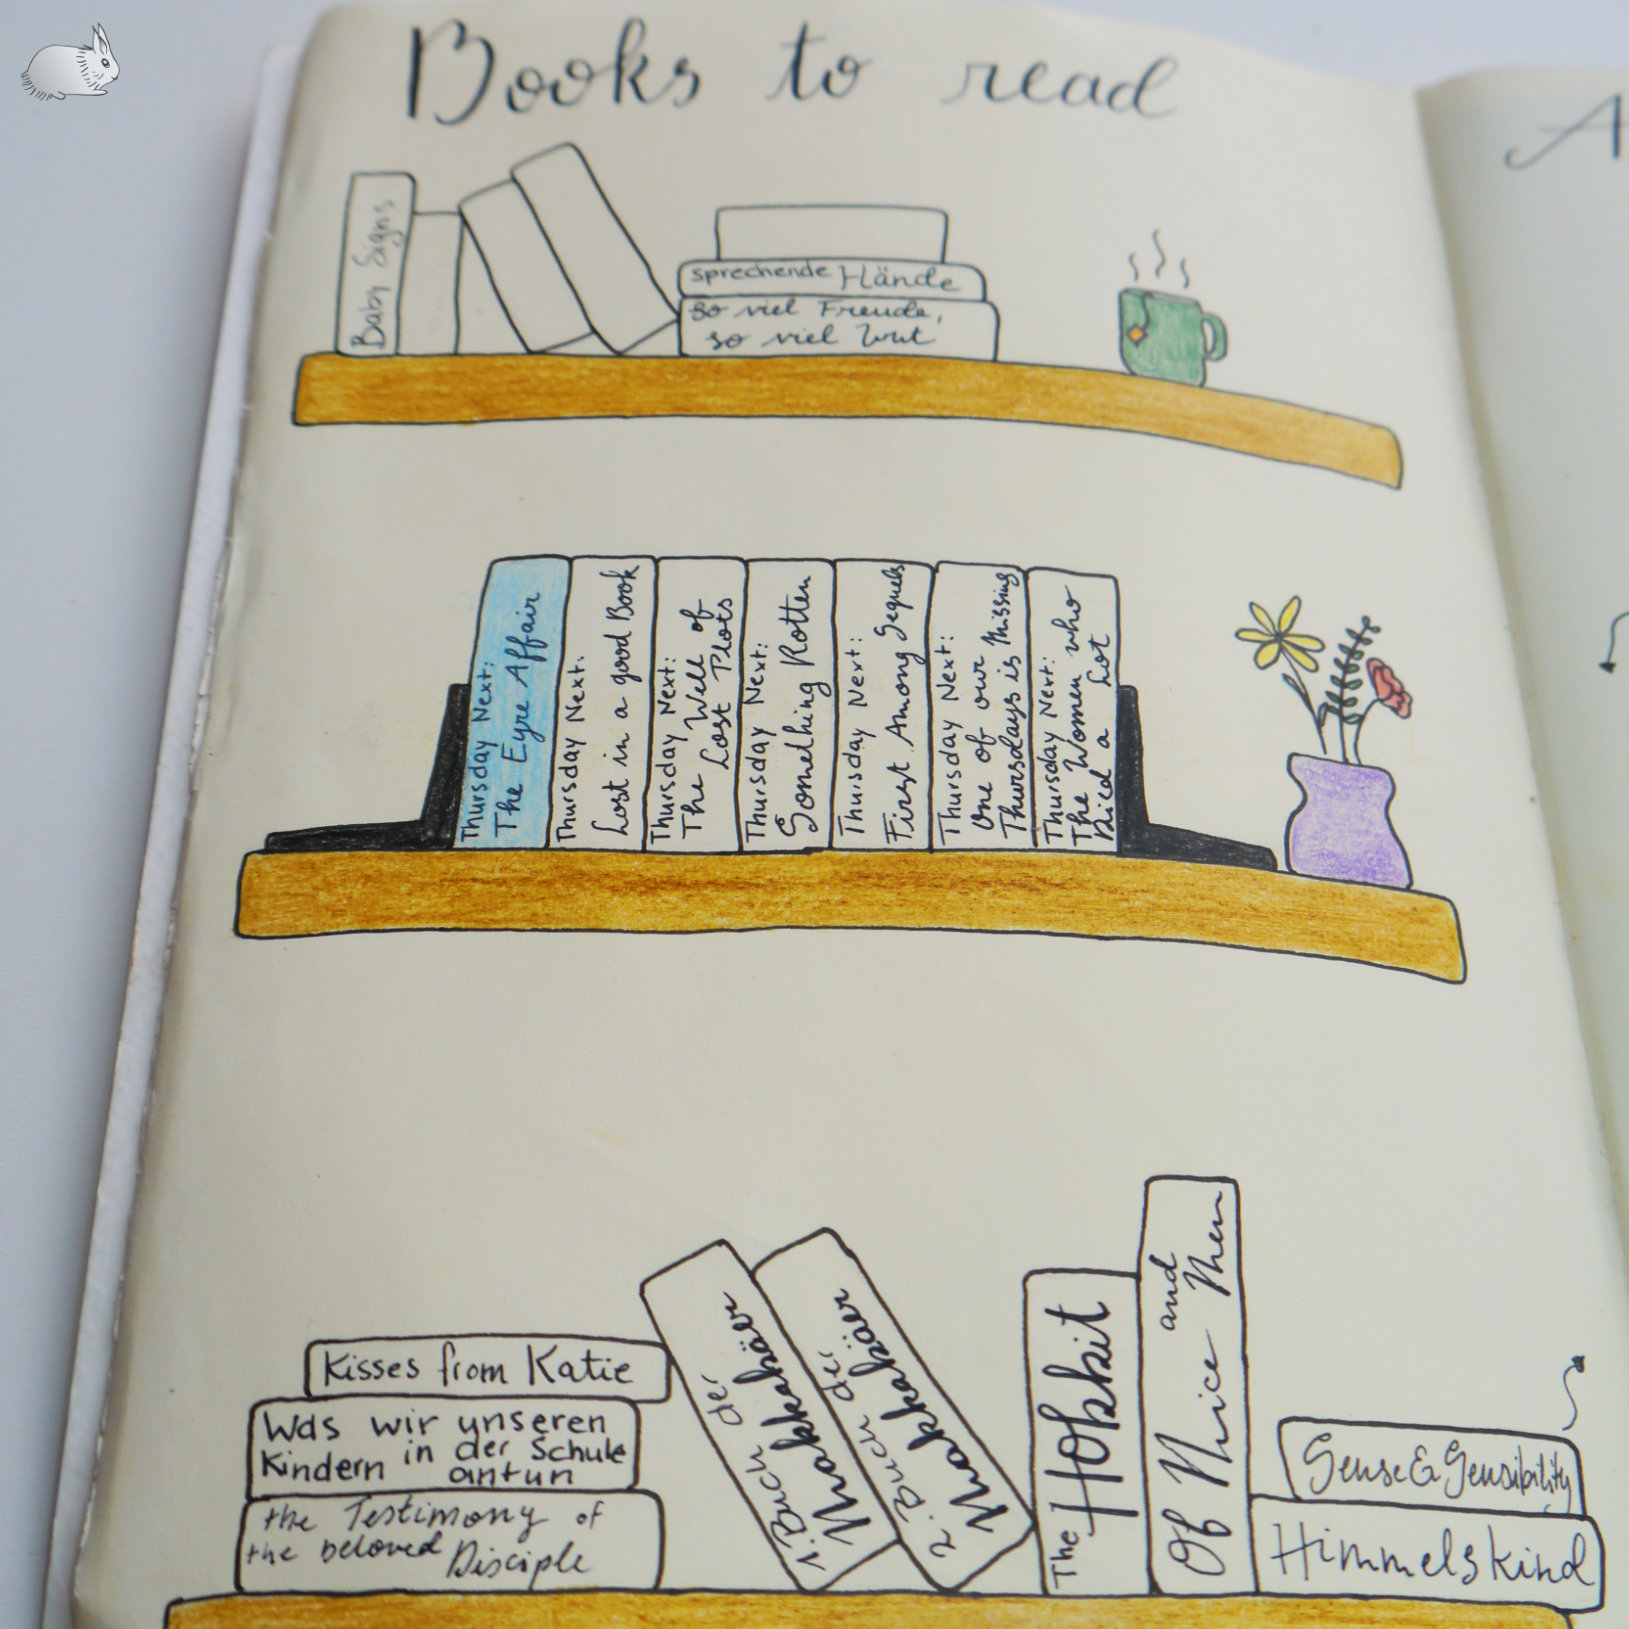 Books to read
A
Baby Signs
sprechende Hände
so viel Freude,
so viel Wut
Thursday Next:
The Eyre Affair
Thursday Next:
Lost in a good Book
Thursday Next:
The Well of
Lost Plots
Thursday Next:
Something Rotten
Thursday Next:
First Among Sequels
Thursday Next:
One of our
Thursdays is Missing
Thursday Next:
The Women who
Died a Lot
Kisses from Katie
Was wir unseren
Kindern in der Schule
antun
the Testimony of
the beloved Disciple
1. Buch der
Makkabäer
2. Buch der
Makkabäer
The Hobbit
Of Mice and Men
Sense & Sensibility
Himmelskind